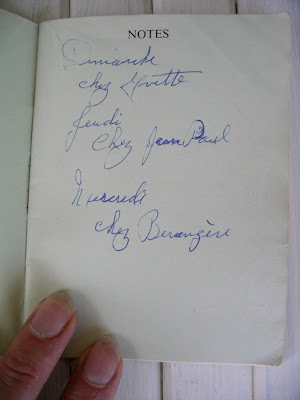 NOTES
Dimanche
chez Yvette
Jeudi
Chez Jean Paul
Mercredi
chez Berangère